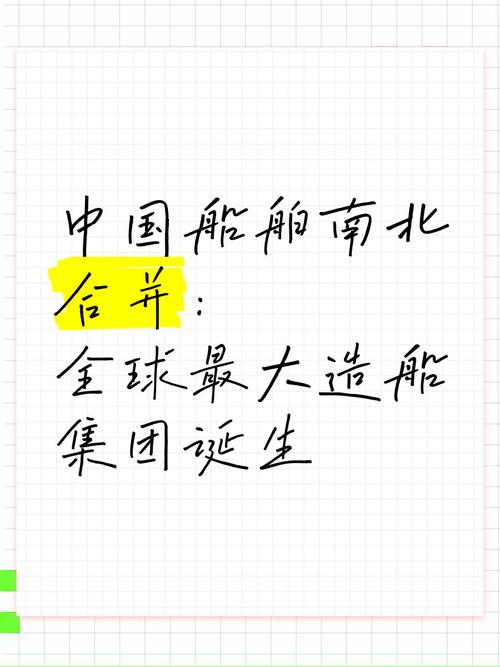 中国船舶南北
合并：
全球最大造船
集团诞生